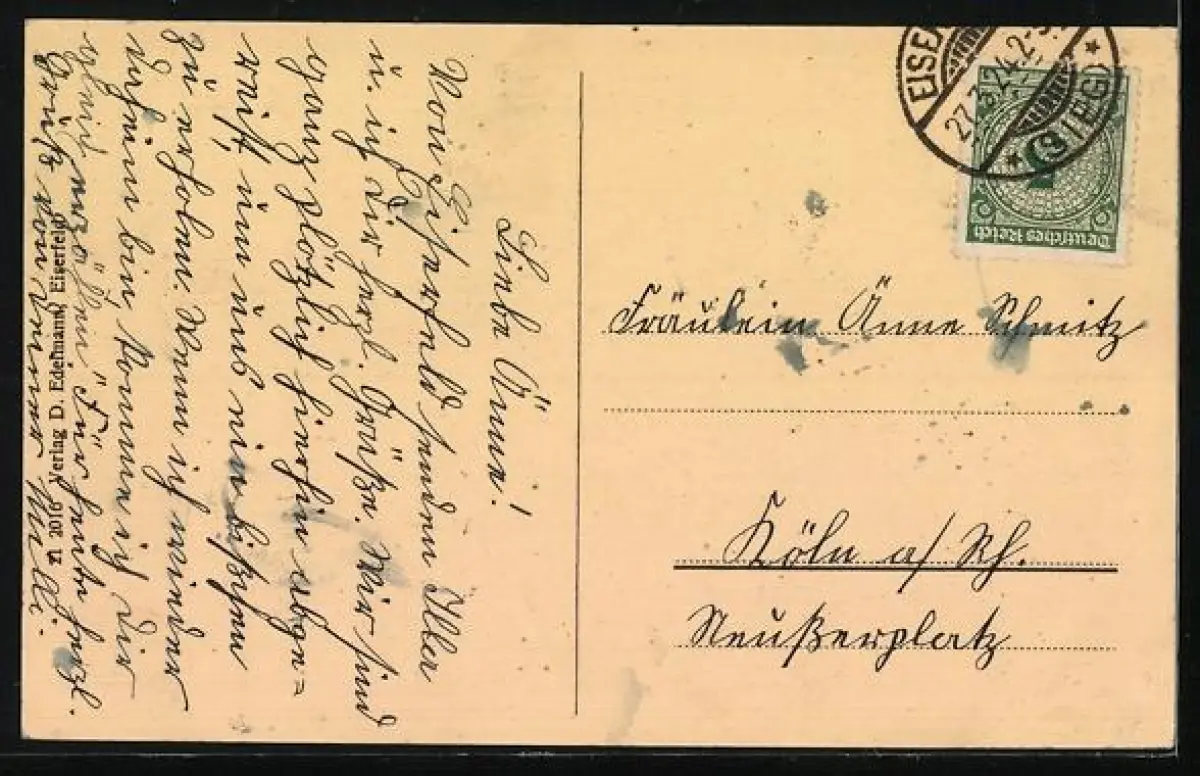 Liebe Änne!
Von Eiserfeld senden Iller
u. ich Dir herzl. Grüße. Wir sind
ganz plötzlich hierhin abge=
reist, um uns ein bißchen
zu erholen. Wenn ich wieder
daheim bin, komme ich Dir
erzählen. Für heute herzl.
Grüße von Deiner Malli.
n 2016 Verlag D. Edelmann, Eiserfeld
EISE
(SIEG)
27.3.24.2-3
Deutsches Reich
Fräulein Änne Schmitz
Köln a/Rh.
Neußerplatz